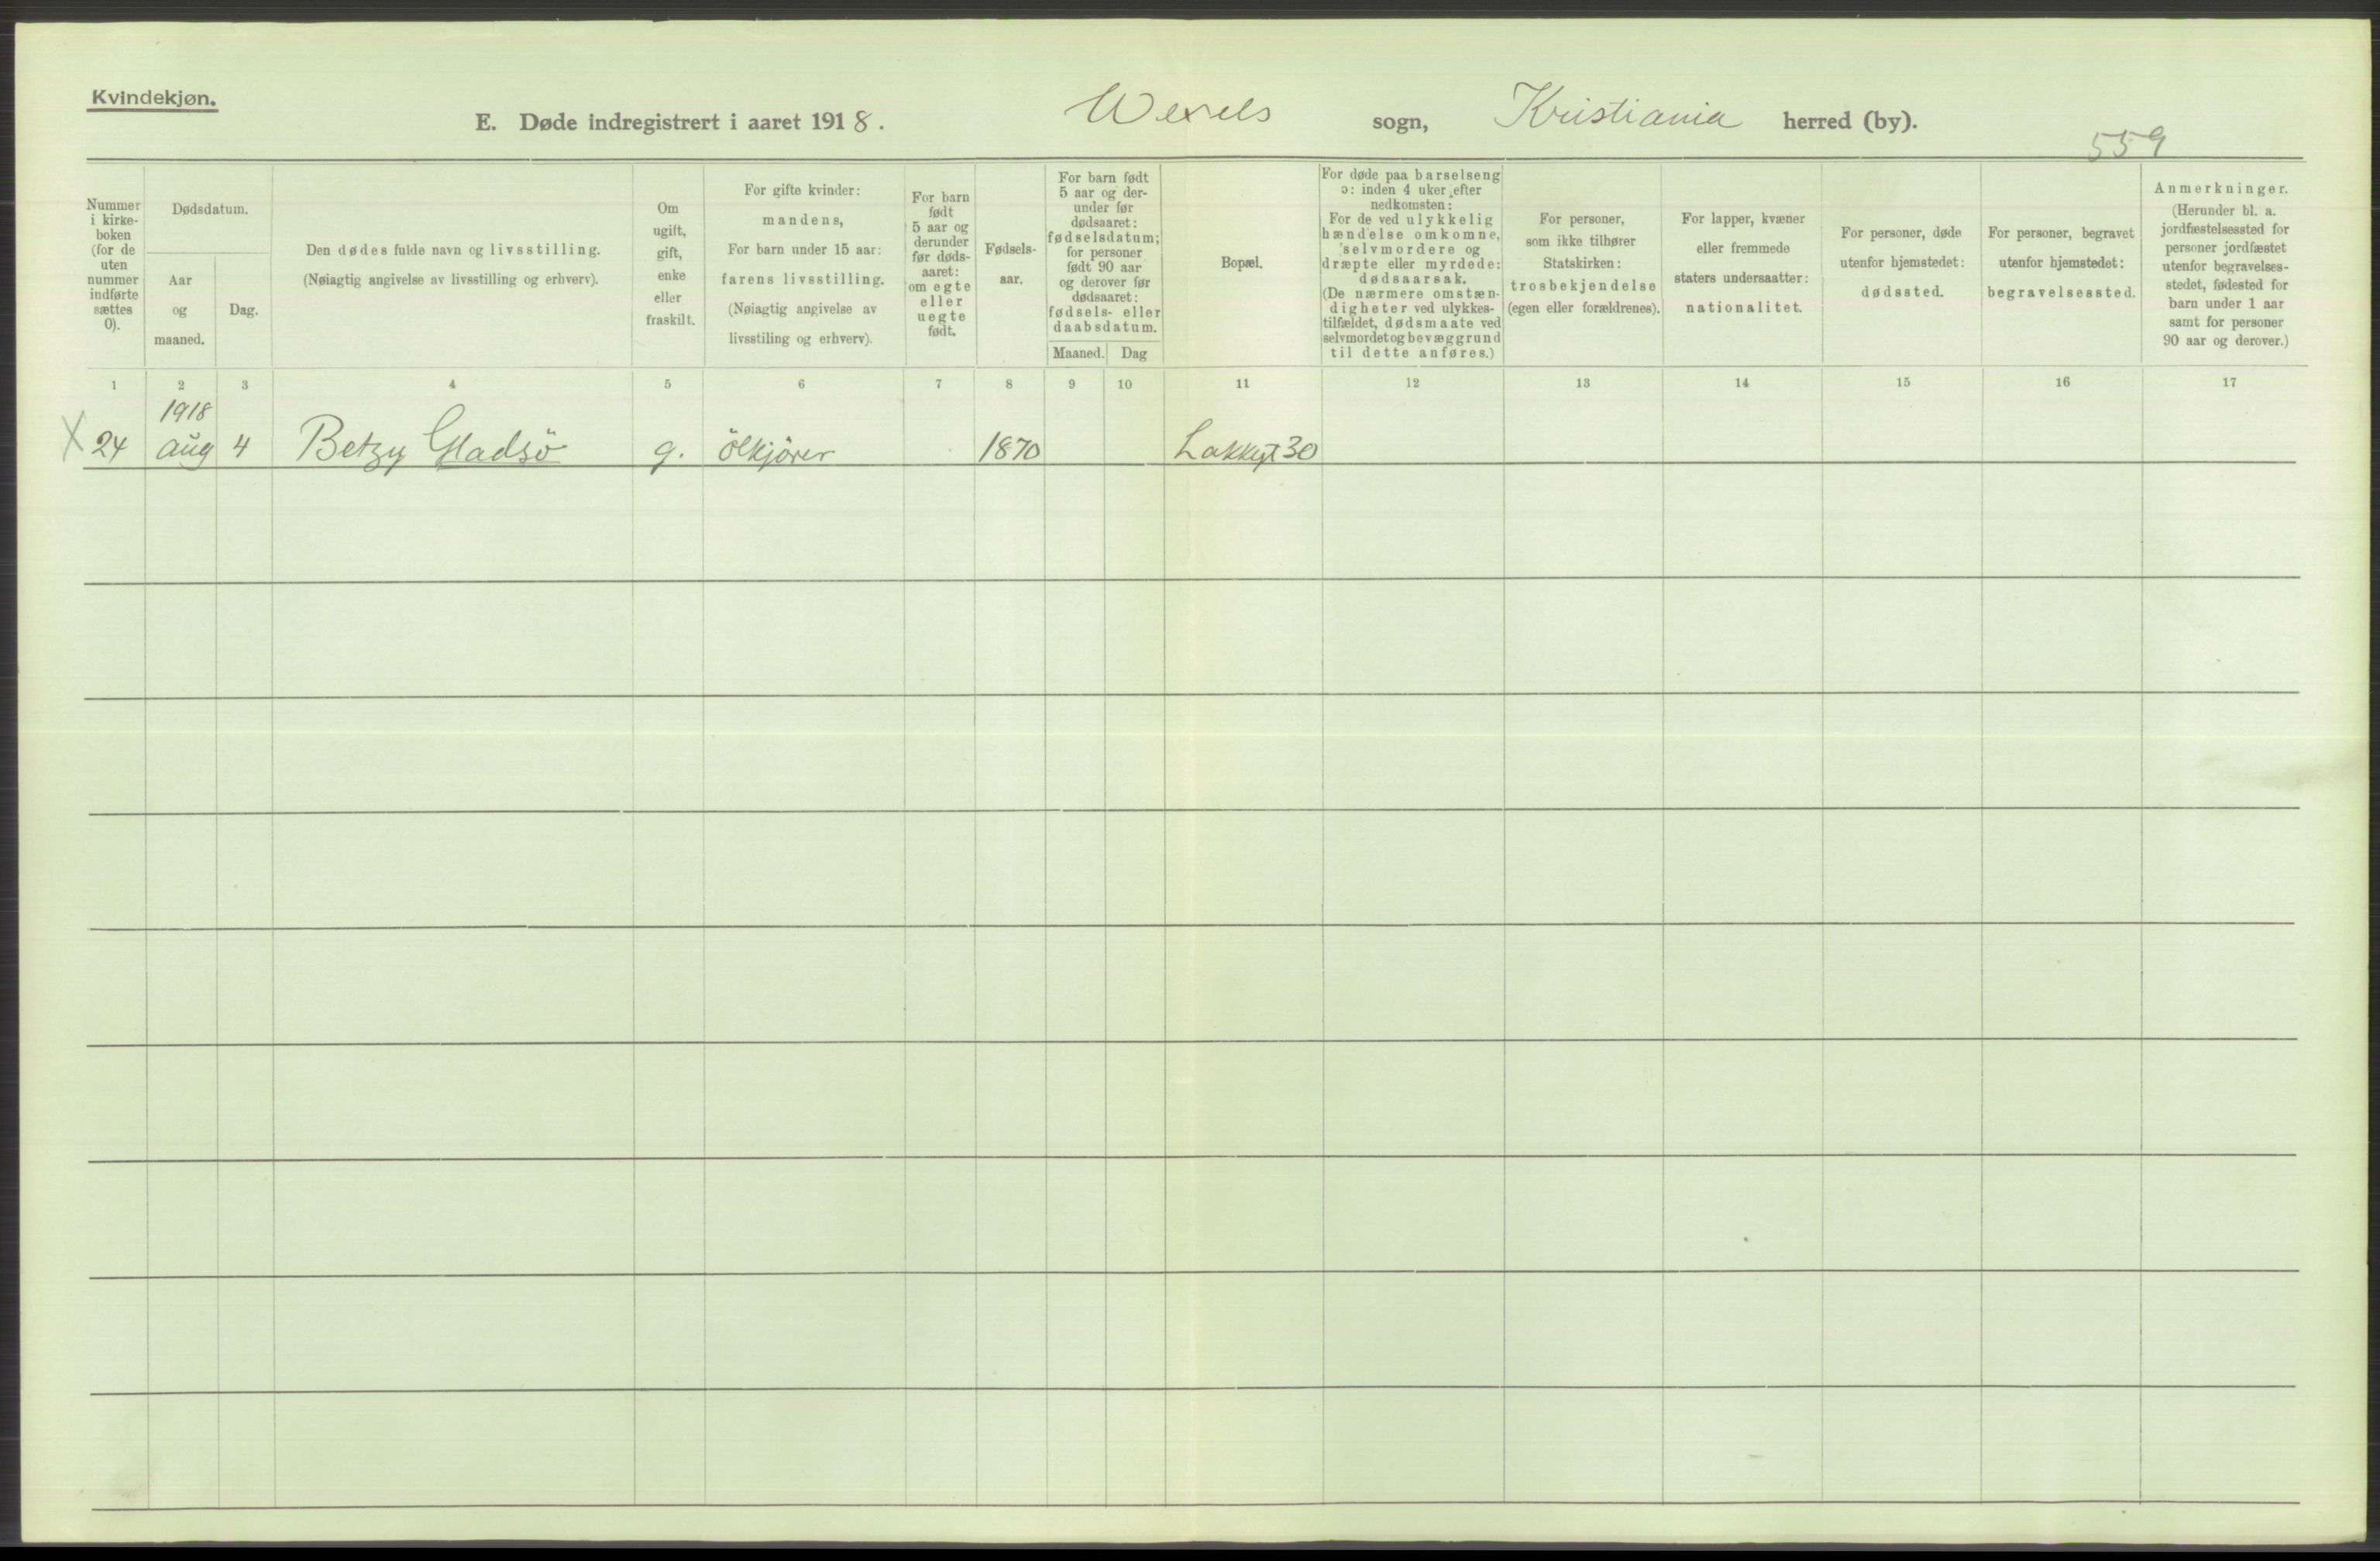 Kvindekjøn.
E. Døde indregistrert i aaret 1918. Wexels sogn, Kristiania herred (by).
559
Nummer
i kirke-
boken
(for de
uten
nummer
indførte
sættes
0).
Dødsdatum.
Aar
og
maaned.
Dag.
Den dødes fulde navn og livsstilling.
(Nøiagtig angivelse av livsstilling og erhverv).
Om
ugift,
gift,
enke
eller
fraskilt.
For gifte kvinder:
mandens,
For barn under 15 aar:
farens livsstilling.
(Nøiagtig angivelse av
livsstiling og erhverv).
For barn
født
5 aar og
derunder
før døds-
aaret:
om egte
eller
uegte
født.
Fødsels-
aar.
For barn født
5 aar og der-
under før
dødsaaret:
fødselsdatum;
for personer
født 90 aar
og derover før
dødsaaret:
fødsels- eller
daabsdatum.
Maaned. Dag
Bopæl.
For døde paa barselseng
ɔ: inden 4 uker efter
nedkomsten:
For de ved ulykkelig
hændelse omkomne,
selvmordere og
dræpte eller myrdede:
dødsaarsak.
(De nærmere omstæn-
digheter ved ulykkes-
tilfældet, dødsmaate ved
selvmordet og bevæggrund
til dette anføres.)
For personer,
som ikke tilhører
Statskirken:
trosbekjendelse
(egen eller forældrenes).
For lapper, kvæner
eller fremmede
staters undersaatter:
nationalitet.
For personer, døde
utenfor hjemstedet:
dødssted.
For personer, begravet
utenfor hjemstedet:
begravelsessted.
Anmerkninger.
(Herunder bl. a.
jordfæstelsessted for
personer jordfæstet
utenfor begravelses-
stedet, fødested for
barn under 1 aar
samt for personer
90 aar og derover.)
1 2 3 4 5 6 7 8 9 10 11 12 13 14 15 16 17
1918
X 24 aug 4 Betzy Gladsö g. ölkjörer 1870 Lakkegt 30